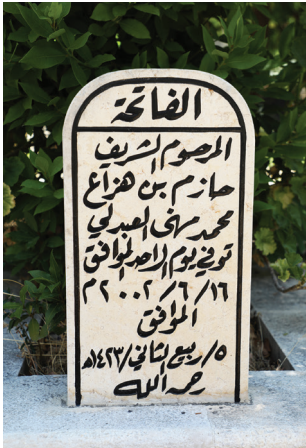 الفاتحة
المرحوم الشريف
حازم بن هزاع
محمد مهنى العبدلي
توفي يوم الاحد الموافق
١٦/٦/٢٠٠٢م
الموافق
٥/ربيع الثاني/١٤٢٣هـ
رحمه الله